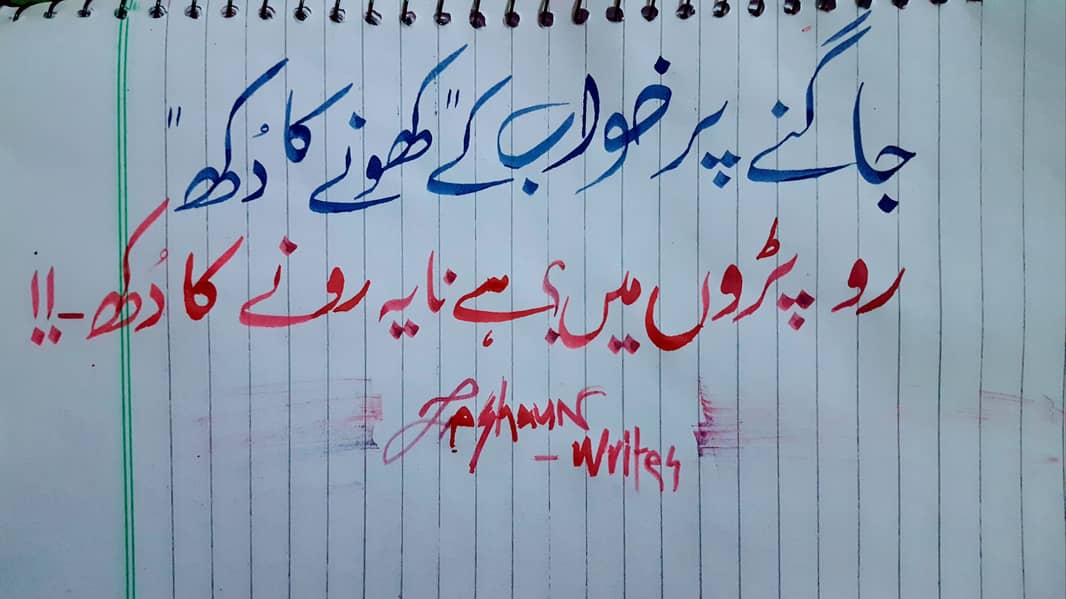 جاگنے پر خواب کے "کھونے کا دُکھ"
رو پڑوں میں؟ ہے نا یہ رونے کا دُکھ۔!!
Zeghaun
-Writes